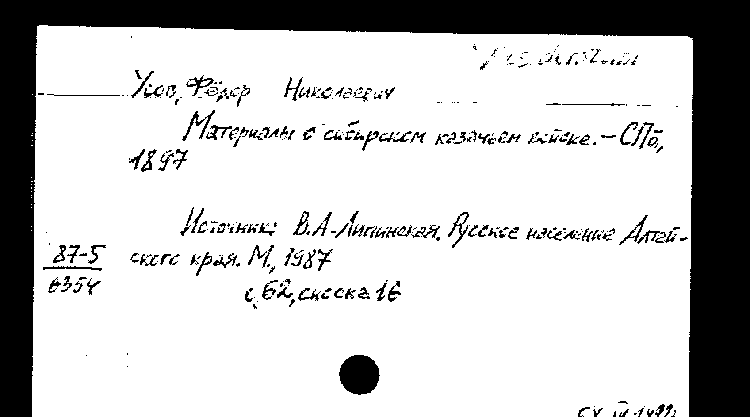 Усов, Фёдор Николаевич
Материалы о сибирском казачьем войске. – СПб,
1897
Источник: В.А. Липинская. Русское население Алтай-
87-5 ского края. М., 1987
6354
с. 62, сноска 16